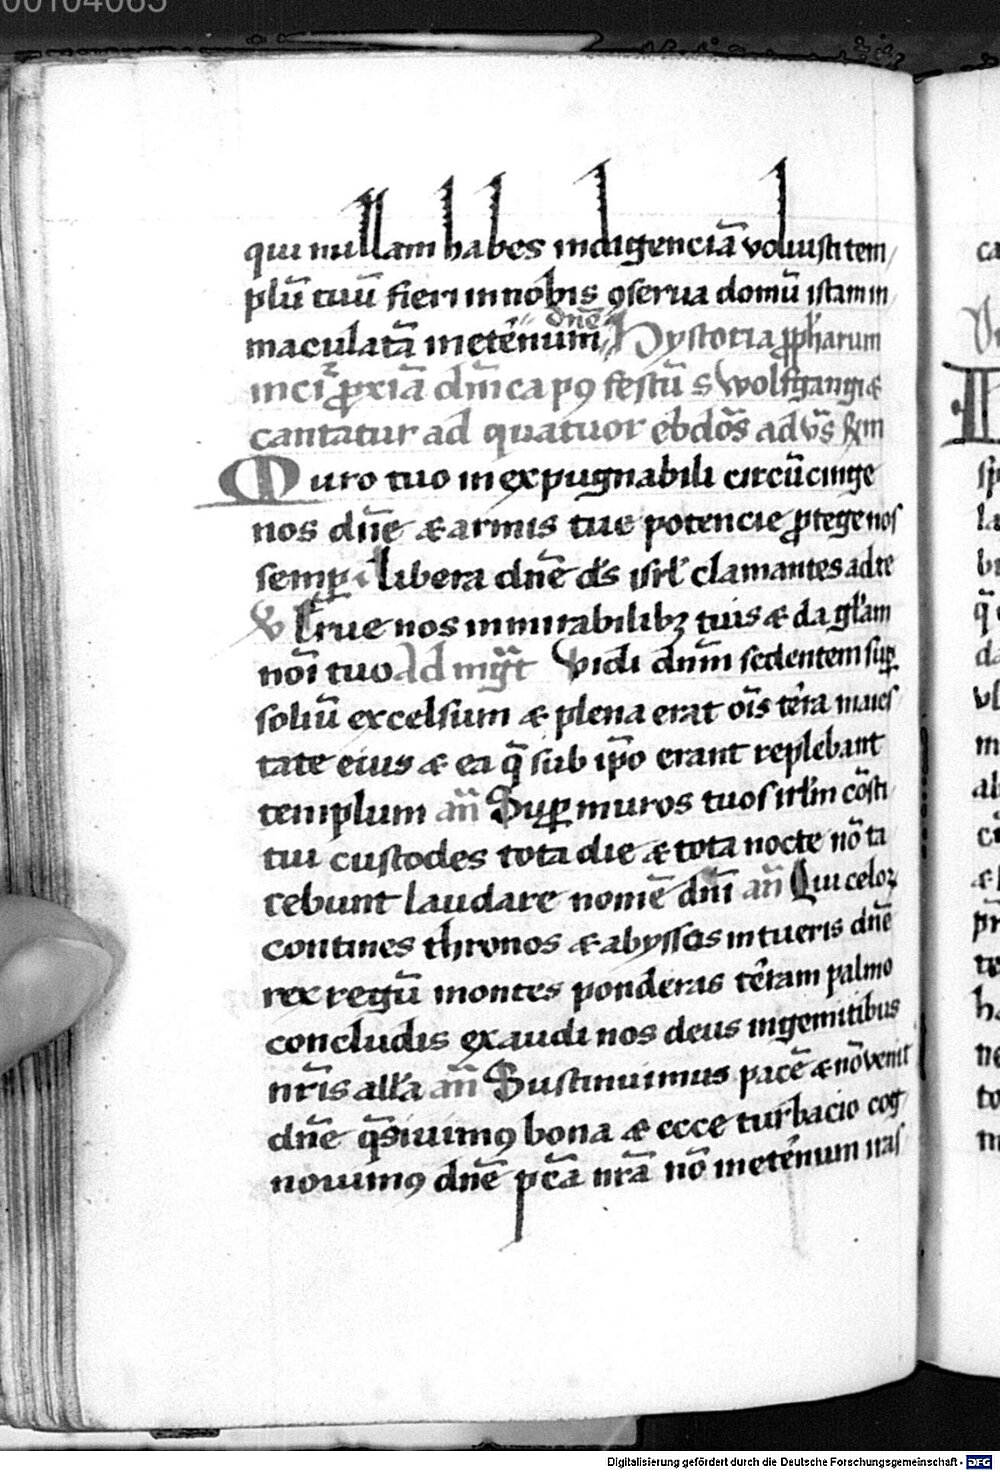 00104065
qui nullam habes indigenciā voluisti tem
plū tuū fieri in nobis ꝯserua domū istam in
maculatā inet̄enum dn̄e Hystoria ꝓph̄arum
inci ꝓxiā dn̄ica pꝯ festū s wolfgangi ⁊
cantatur ad quatuor ebdōs adūs
Muro tuo inexpugnabili circūcinge
nos dn̄e ⁊ armis tue potencie ꝓtege nos
semꝑ libera dn̄e ds̄ isrl̄ clamantes ad te
℣ Erue nos in mirabilibꝫ tuis ⁊ da gl̄am
noī tuo Ad mgt̄ Vidi dnm̄ sedentem suꝑ
soliū excelsum ⁊ plena erat oīs t̄ra maies
tate eius ⁊ ea q̄ sub ip̄o erant replebant
templum an̄ Suꝑ muros tuos irl̄m cōsti
tui custodes tota die ⁊ tota nocte nō ta
cebunt laudare nomē dnī an̄ Qui celoꝝ
contines thronos ⁊ abyssos intueris dnē
rex regū montes ponderas t̄eram palmo
concludis exaudi nos deus in gemitibus
nr̄is all'a an̄ Sustinuimus pacē ⁊ nō venit
dn̄e q̄siuimꝯ bona ⁊ ecce turbacio cog
nouimꝯ dn̄e pc̄a nr̄a nō in et̄enum iras
Digitalisierung gefördert durch die Deutsche Forschungsgemeinschaft - DFG